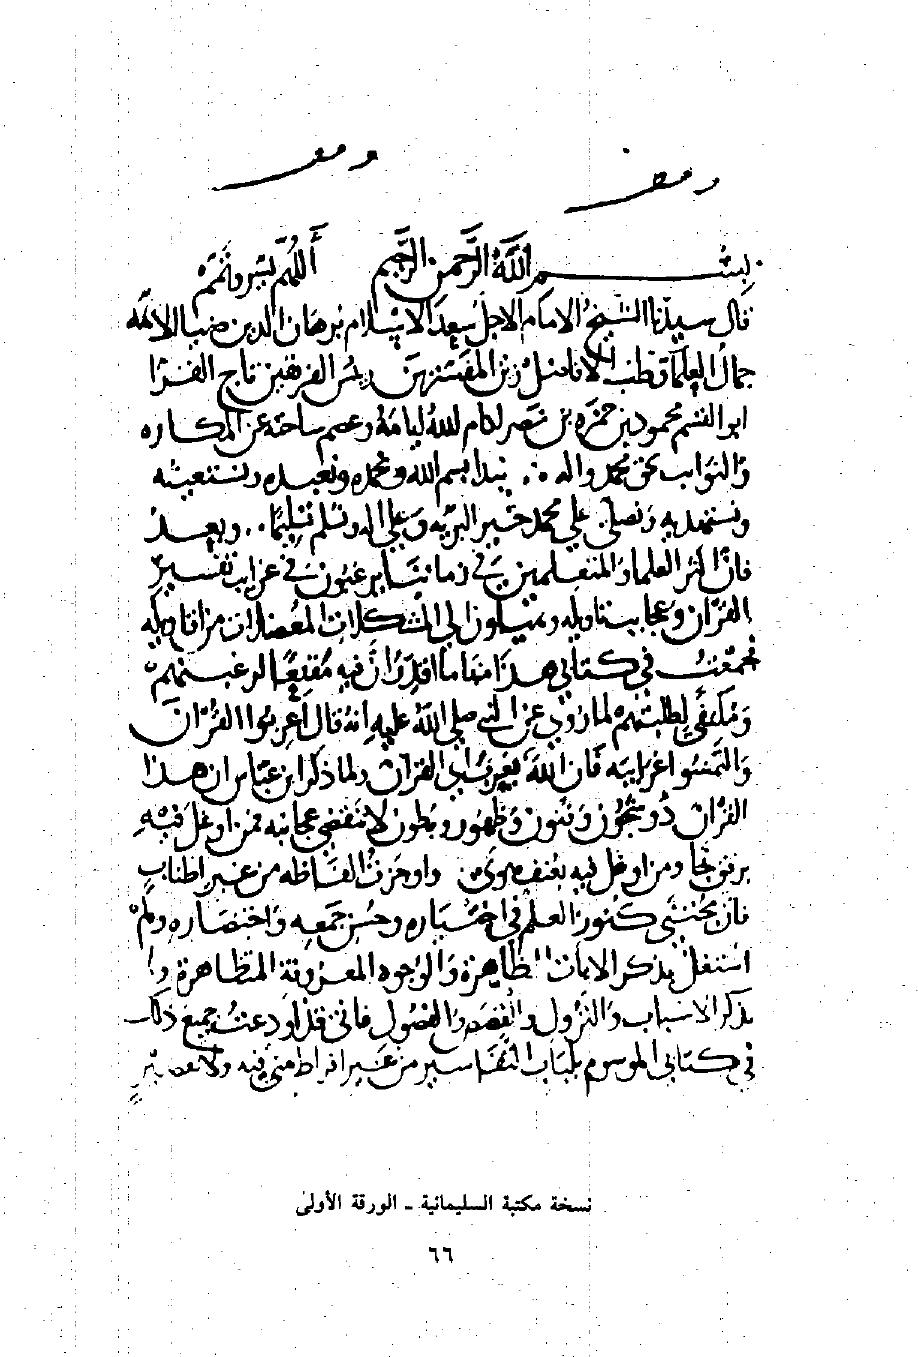 وقف
وقف
بسم الله الرحمن الرحيم اللهم يسر وتمم
قال سيدنا الشيخ الامام الاجل سعد الاسلام برهان الدين ضيا الائمه
جمال العلما قطب الافاضل زين المفسرين رئيس الفريقين تاج القرا
ابو القسم محمود بن حمزه بن نصر ادام الله ايامه وعصم ساحته عن المكاره
والنوايب بحق محمد واله . نبدا بسم الله ونحمده ونعبده ونستعينه
ونستهديه ونصلي على محمد خير البريه وعلى اله ونسلم تسليما .. وبعد
فان اكثر العلما والمتعلمين في زماننا يرغبون في غرايب تفسير
القران وعجايب تاويله ويميلون الى المشكلات المعضلات من اقاويله
فجمعت في كتابي هذا منها ما اقدر ان فيه مقنعا لرغبتهم
ومكتفى لطلبتهم لما روي عن النبي صلى الله عليه انه قال اعربوا القران
والتمسوا غرايبه فان الله يحب ان يعرب القران ولما ذكر ابن عباس ان هذا
القران ذو شجون وفنون وظهور وبطون لا تنقضي عجايبه فمن اوغل فيه
برفق نجا ومن اوغل فيه بعنف هوى . واوجزت الفاظه من غير اطناب
فان مجتنى كنوز العلم في اختياره وحسن جمعه واختصاره ولم
اشتغل بذكر الايات الظاهرة والوجوه المعروفة المتظاهرة ولا
بذكر الاسباب والنزول والقصص والفصول فاني قد اودعت جميع ذلك
في كتابي الموسوم بلباب التفاسير من غير افراط مني فيه ولا تقصير
نسخة مكتبة السليمانية - الورقة الأولى
٦٦